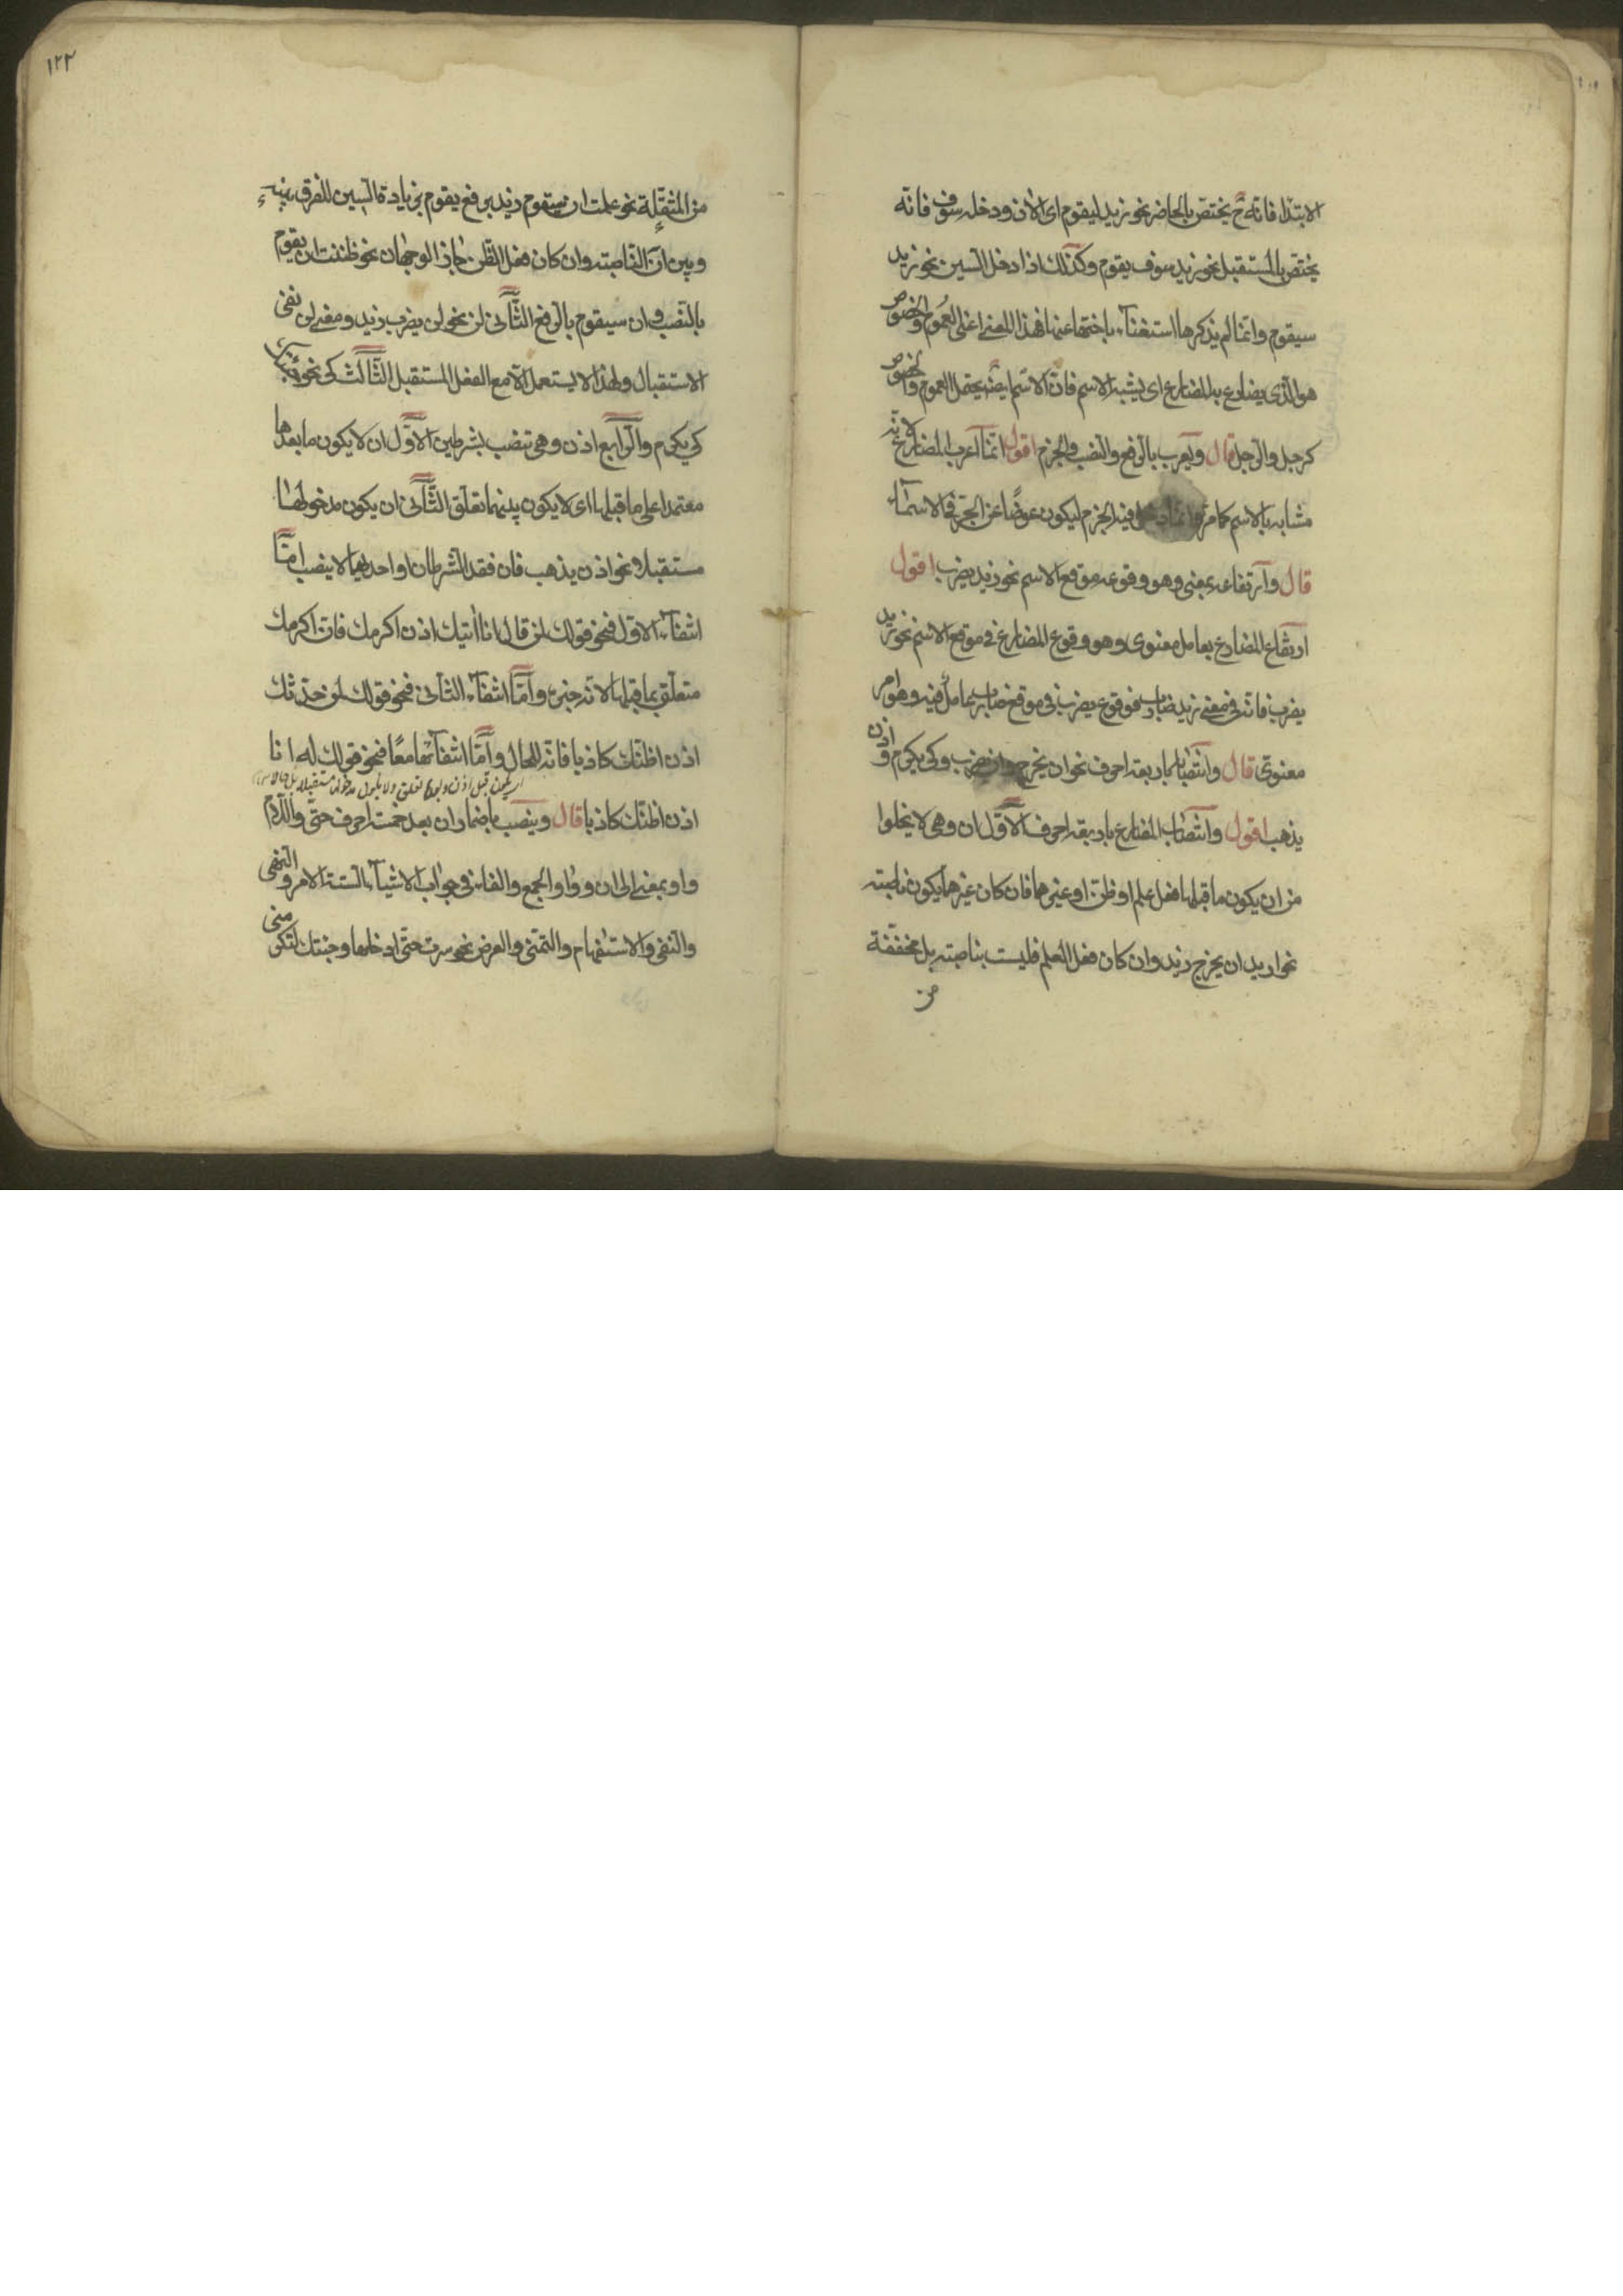 الابتدا فانه ح يختص بالحاضر نحو زيد ليقوم اى الان ودخله سوف فانه
يختص بالمستقبل نحو زيد سوف يقوم وكذلك اذا دخل السين نحو زيد
سيقوم وانما لم يذكرها استغناء باختها عنها فهذا المعنى اعنى العموم والخصوص
هو الذى يضارع به المضارع اى يشبه الاسم فان الاسم ايضه يحتمل العموم والخصوص
كرجل والرجل قال ويعرب بالرفع والنصب والجزم اقول انما اعرب المضارع لانه
مشابه بالاسم كما مر وانما دخل فيه الجزم ليكون عوضًا عن الجر فى الاسماء
قال وارتفاعه بمعنى وهو وقوعه موقع الاسم نحو زيد يضرب اقول
ارتفاع المضارع بعامل معنوى وهو وقوع المضارع فى موقع الاسم نحو زيد
يضرب فانه فى معنى زيد ضارب فوقوع يضرب فى موقع ضارب عامل فيه وهو امر
معنوى قال وانتصابه باربعة احرف نحو ان يخرج ولن يضرب وكى يكرم واذن
يذهب اقول وانتصاب المضارع باربعة احرف الاول ان وهى لا يخلوا
من ان يكون ما قبلها فعل علم او ظن او غيرهما فان كان غيرهما يكون ناصبته
نحو اريد ان يخرج زيد وان كان فعل العلم فليست بناصبته بل مخففة
من
١٢٣
من المثقلة نحو علمت ان سيقوم زيد برفع يقوم بزيادة السين للفرق بينه
وبين ان الناصبته وان كان فعل الظن جاز الوجهان نحو ظننت ان يقوم
بالنصب وان سيقوم بالرفع الثانى لن نحو لن يضرب زيد ومعنى لن نفى
الاستقبال ولهذا لا يستعمل الا مع الفعل المستقبل الثالث كى نحو
كى يكرم والرابع اذن وهى تنصب بشرطين الاول ان لا يكون ما بعدها
معتمدا على ما قبلها اى لا يكون بينهما تعلق الثانى ان يكون مدخولها
مستقبلا نحو اذن يذهب فان فقد الشرطان او احدهما لا ينصب اما
انتفاء الاول فنحو قولك لمن قال انا اتيك اذن اكرمك فان اكرمك
متعلق بما قبلها لانه خبر وامّا انتفاء الثانى فنحو قولك لمن حدثك
اذن اظنك كاذبا فانه للحال وامّا انتفائهما معًا فنحو قولك له انا
اذن اظنك كاذبا قال وينصب باضمار ان بعد خمسة احرف حتى واللام
واو بمعنى الى ان وواو الجمع والفاء فى جواب الاشياء الستة الامر والنهى
والنفى والاستفهام والتمنى والعرض نحو سرت حتى ادخلها وجئتك لتكرمنى